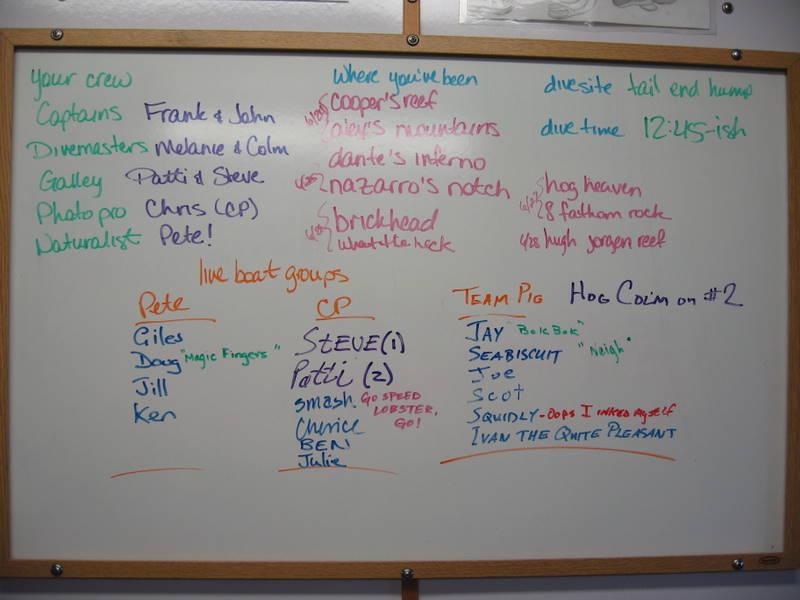 your crew
Captains Frank & John
Divemasters Melanie & Colm
Galley Patti & Steve
Photo pro Chris (CP)
Naturalist Pete!
Where you've been
cooper's reef
alex's mountains
dante's inferno
nazarro's notch
brickhead
what the heck
divesite tail end hump
dive time 12:45-ish
hog heaven
8 fathom rock
6/28 hugh jorgen reef
live boat groups
Pete
Giles
Doug "Magic Fingers"
Jill
Ken
CP
STEVE (1)
Patti (2)
smash GO SPEED
LOBSTER,
GO!
Cherice
BEN
Julie
TEAM PIG HOG COLM on #2
JAY "Bok Bok"
SEABISCUIT "Neigh"
Joe
Scot
SQUIDLY - Oops I inked myself
IVAN THE QUITE PLEASANT